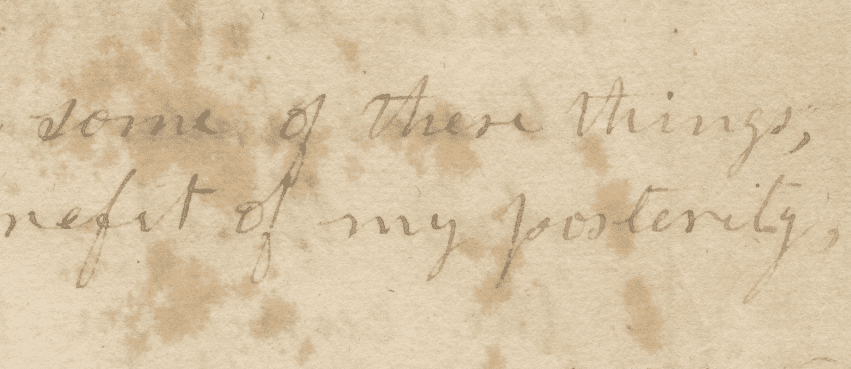 some of these things,
nefit of my posterity,